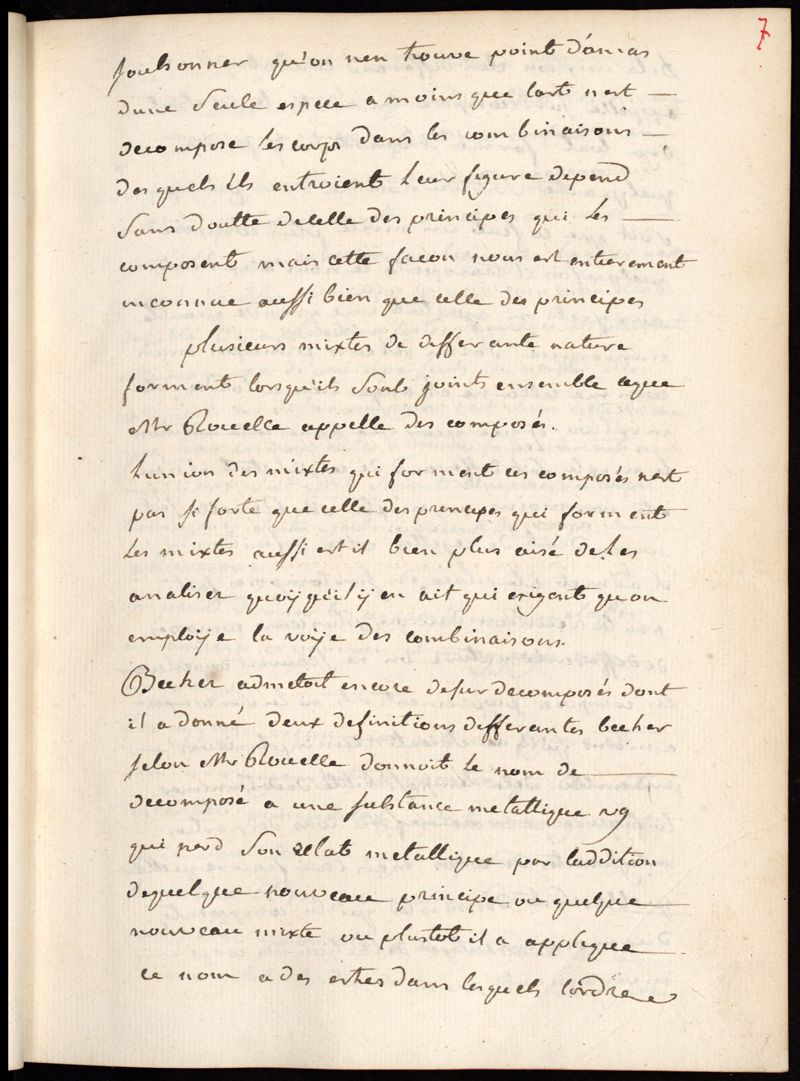 7
qu'on n'en trouve point d'amas
d'une seule espece a moins que l'art n'ait —
decomposé les corps dans les combinaisons —
desquels ils entroient leur figure depend
sans doutte de celle des principes qui les —
composent mais cette facon nous est entierement
inconnue aussi bien que celle des principes
plusieurs mixtes de differante nature
forment lorsqu'ils sont joints ensemble ce que
Mr Rouelle appelle des composés.
L'union des mixtes qui forment ces composés n'est
pas si forte que celle des principes qui forment
les mixtes aussi est il bien plus aisé de les
analiser quoy qu'il y en ait qui exigent qu'on
employe la voye des combinaisons.
Becher admetoit encore de surdecomposés dont
il a donné deux definitions differantes becher
selon Mr Rouelle donnoit le nom de —
decomposé a une substance metallique vg
qui perd son eclat metallique par l'addition
de quelque nouveau principe ou quelque —
nouveau mixte ou plustot il a applique —
ce nom a des dans lesquels l'ordre